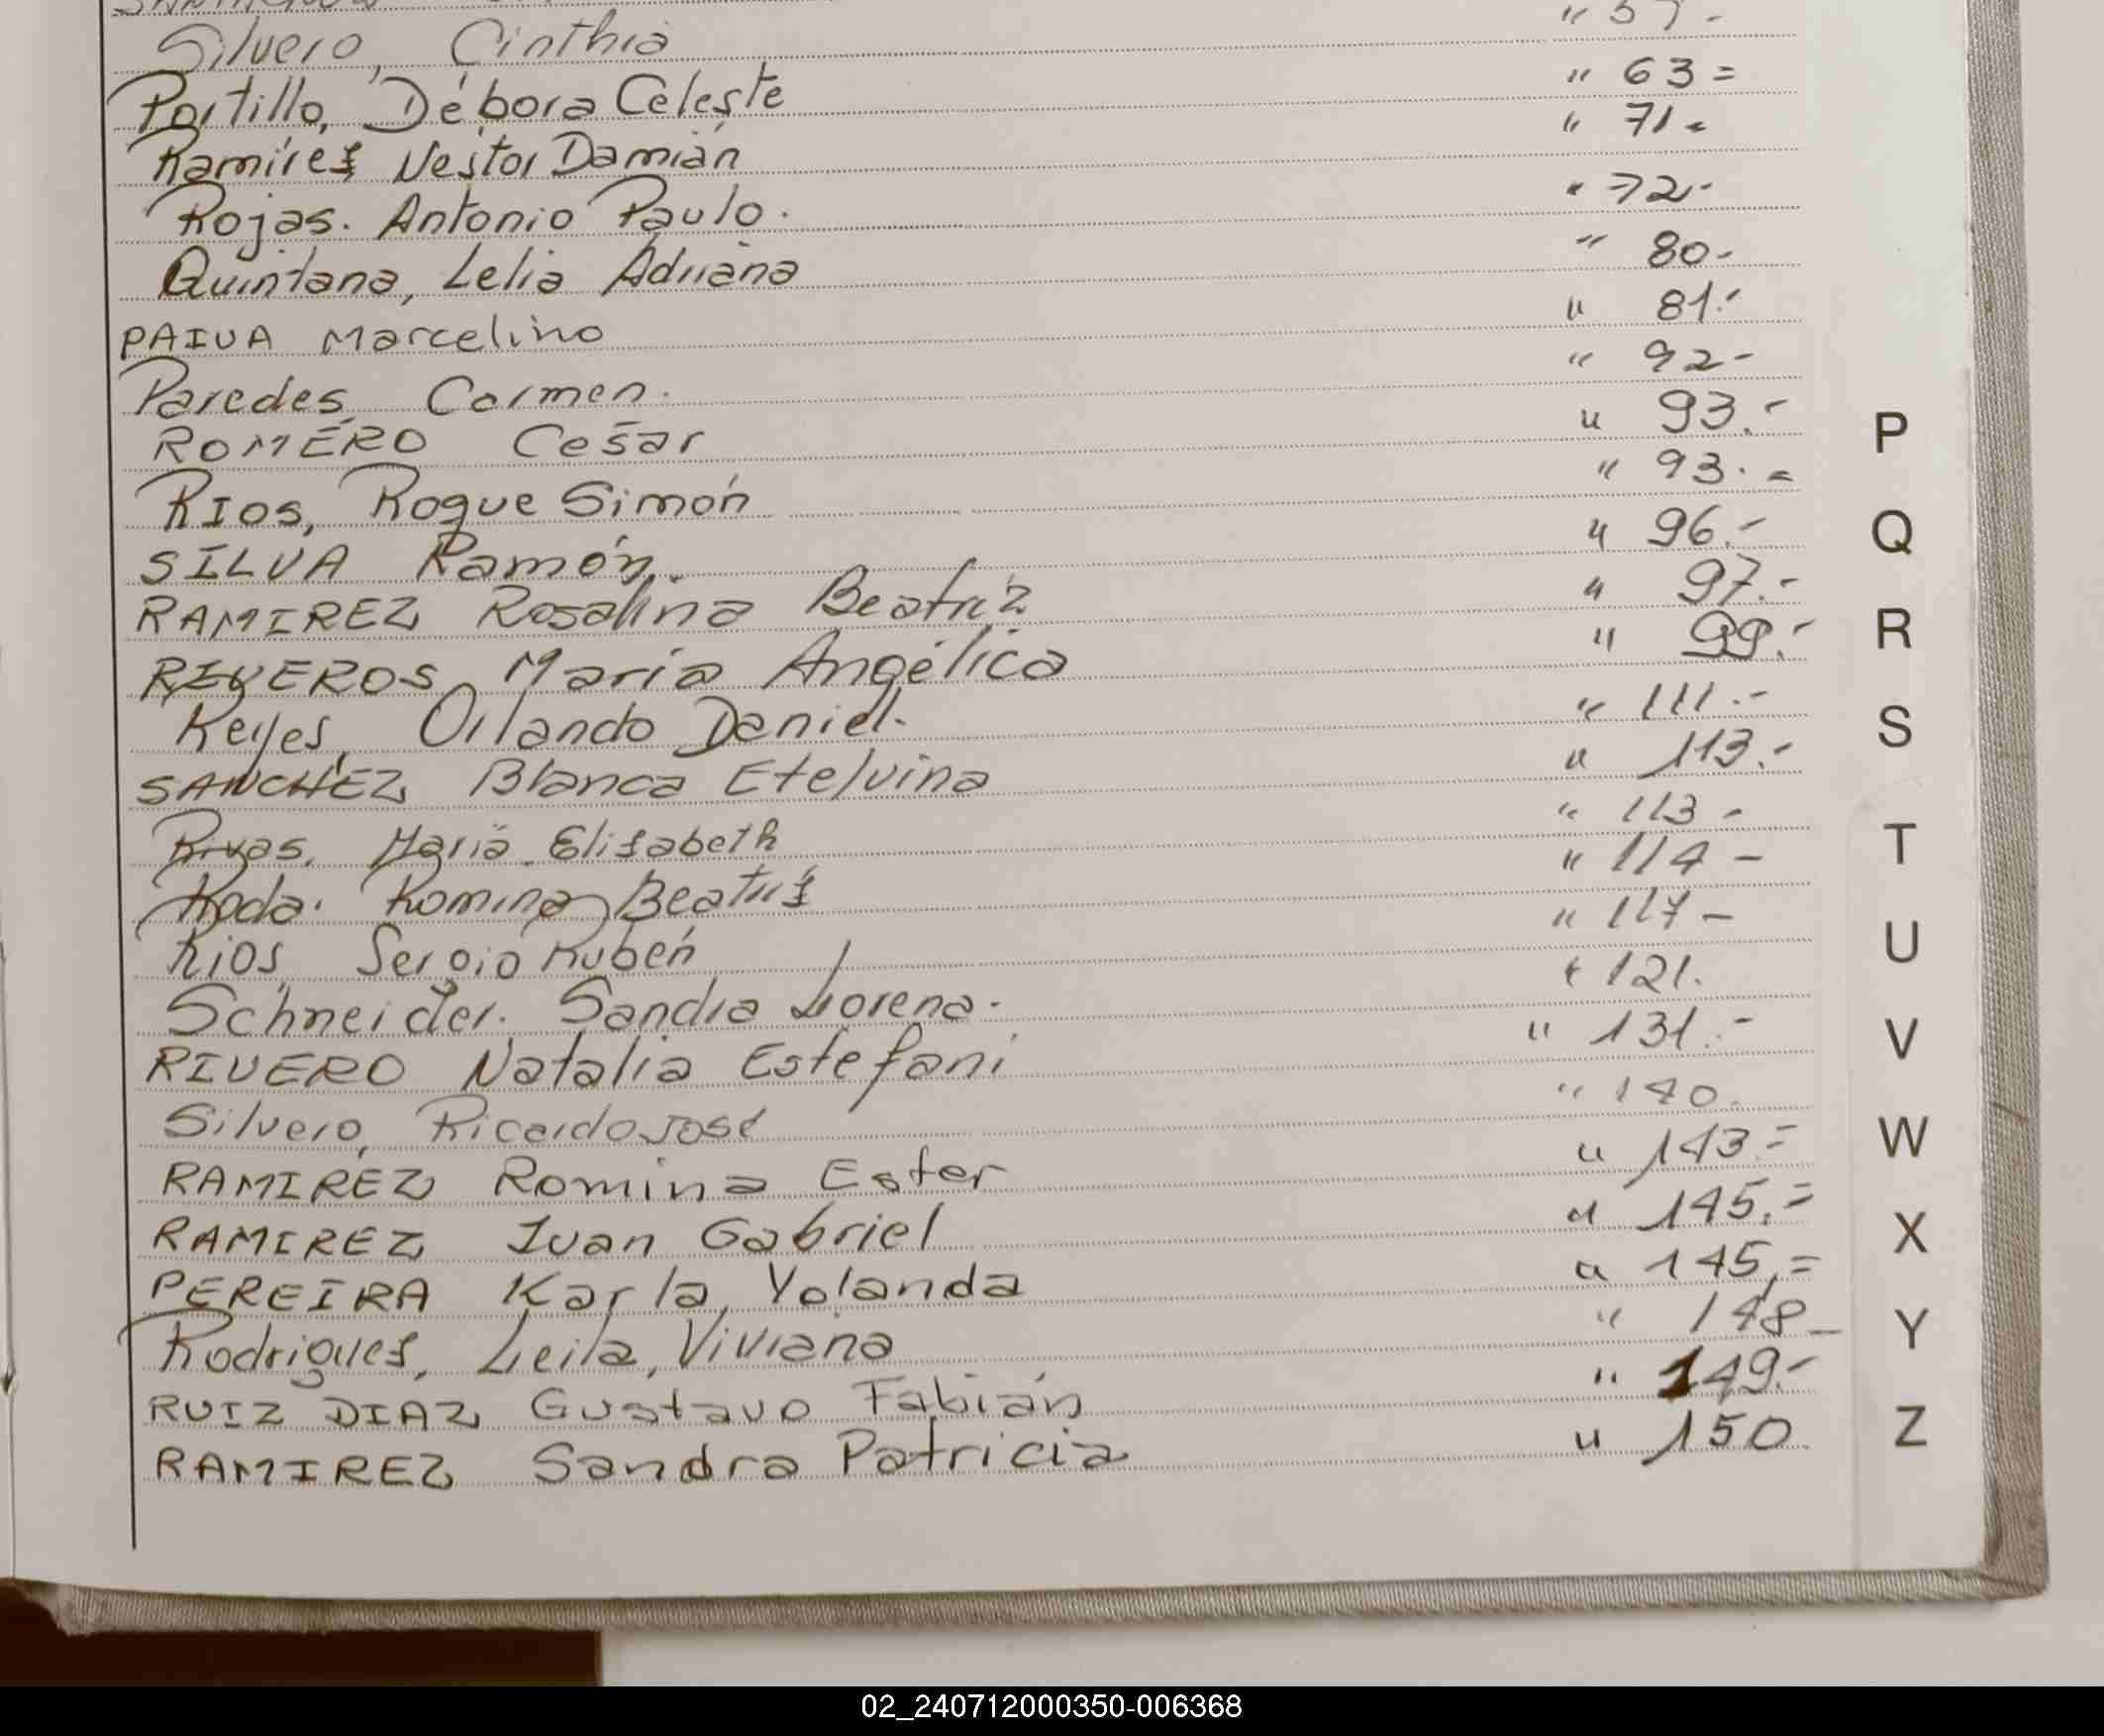 Silvero, Cinthia " 57 -
Portillo, Débora Celeste " 63 =
Ramírez Nestor Damián " 71 -
Rojas. Antonio Paulo. " 72 -
Quintana, Lelia Adriana " 80 -
PAIVA Marcelino " 81.-
Paredes Carmen. " 92 -
ROMERO Cesar " 93.-
RIOS, Roque Simón " 93. =
SILVA Ramón. " 96.-
RAMIREZ Rosalina Beatriz " 97.-
RIVEROS Maria Angélica " 99.-
Reyes, Orlando Daniel. " 111.-
SANCHEZ Blanca Etelvina " 113.-
Rivas, María Elisabeth " 113 -
Roda. Romina Beatriz " 114 -
Rios, Sergio Rubén " 117 -
Schneider. Sandra Lorena. " 121.
RIVERO Natalia Estefani " 131.-
Silvero, Ricardo José " 140.
RAMIREZ Romina Ester " 143.=
RAMIREZ Ivan Gabriel " 145.=
PEREIRA Karla Yolanda " 145,=
Rodrigues, Leila, Viviana " 148 -
RUIZ DIAZ Gustavo Fabián " 149.-
RAMIREZ Sandra Patricia " 150.
P
Q
R
S
T
U
V
W
X
Y
Z
02_240712000350-006368